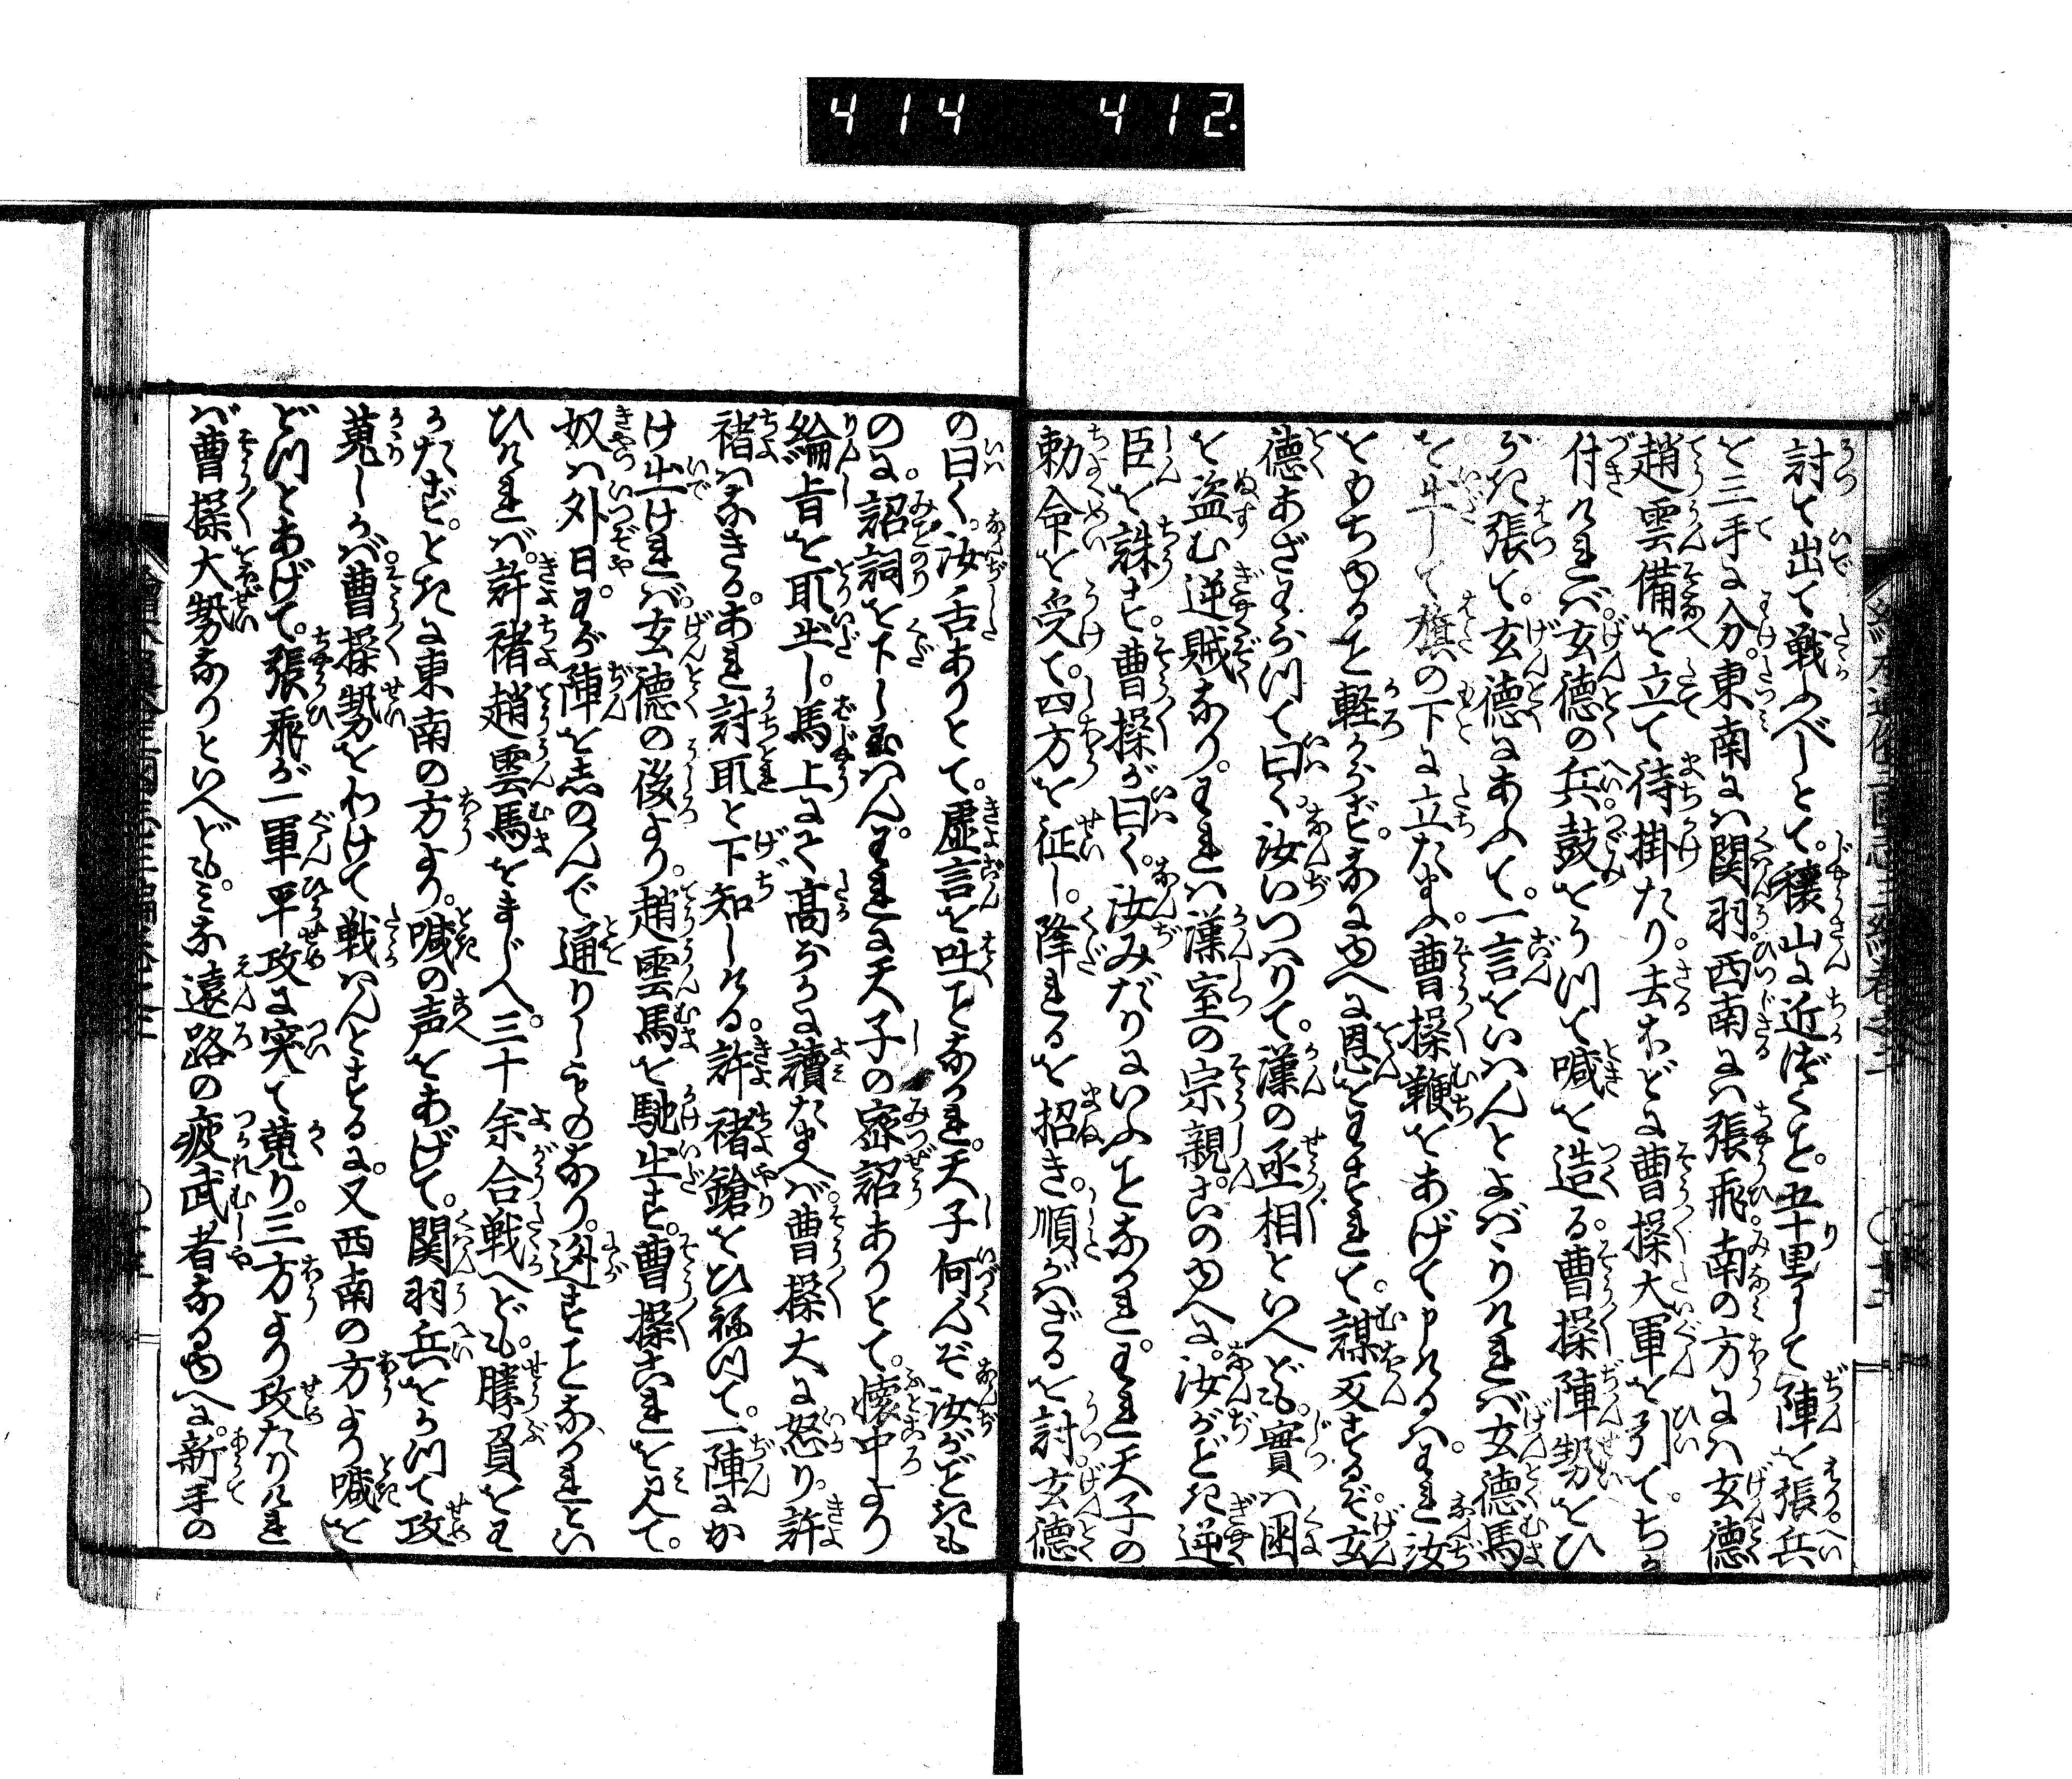 414 412.
討て出て戦ふべしとて。穰山に近づくと。五十里にして陣を張兵
を三手に分。東南には関羽。西南には張飛。南の方には玄徳
趙雲備を立て待掛たり。去ほどに曹操大軍を引て。ちか
付ければ。玄徳の兵。鼓をうつて喊を造る。曹操陣勢をひ
らき張て。玄徳にあふて。一言をいはんとよばゝりければ玄徳馬
を出して旗の下に立たまふ。曹操鞭をあげて申けるハ。われ汝
をもちゆること軽からず。なにゆへに恩をわすれて。謀反するぞ。玄
徳あざわらつて曰く。汝いつハりて。漢の丞相といへども。實ハ国
を盗む逆賊なり。われハ漢室の宗親。このゆへに。汝がごとき逆
臣を誅す。曹操が曰く。汝みだりにいふことなかれ。われ天子の
勅命を受て。四方を征し。降れるを招き。順がはざるを討。玄徳
の曰く。汝舌ありとて。虚言を吐ことなかれ。天子何んぞ汝がごときも
のに。詔詞を下し玉はん。われに天子の密詔ありとて。懐中より
綸旨を取出し。馬上にて高らかに讀たまへば曹操大に怒り。許
褚ハなきか。あれ討取と下知しける。許褚鎗をひねつて。一陣にか
け出ければ。玄徳の後より。趙雲馬を馳出す。曹操これを見て。
奴ハ外日。わが陣を志のんで通りしものなり。迯すことなかれとい
ひければ。許褚趙雲馬をまじへ。三十余合戦へども。勝負をわ
かたず。ときに東南の方より。喊の声をあげて。関羽兵をうつて攻
蒐しかば。曹操勢をわけて戦はんとするに。又西南の方より喊を
どつとあげて。張飛が一軍平攻に突て蒐り。三方より攻たりけれ
ば曹操大勢なりといへども。ミな遠路の疲武者なるゆへに。新手の